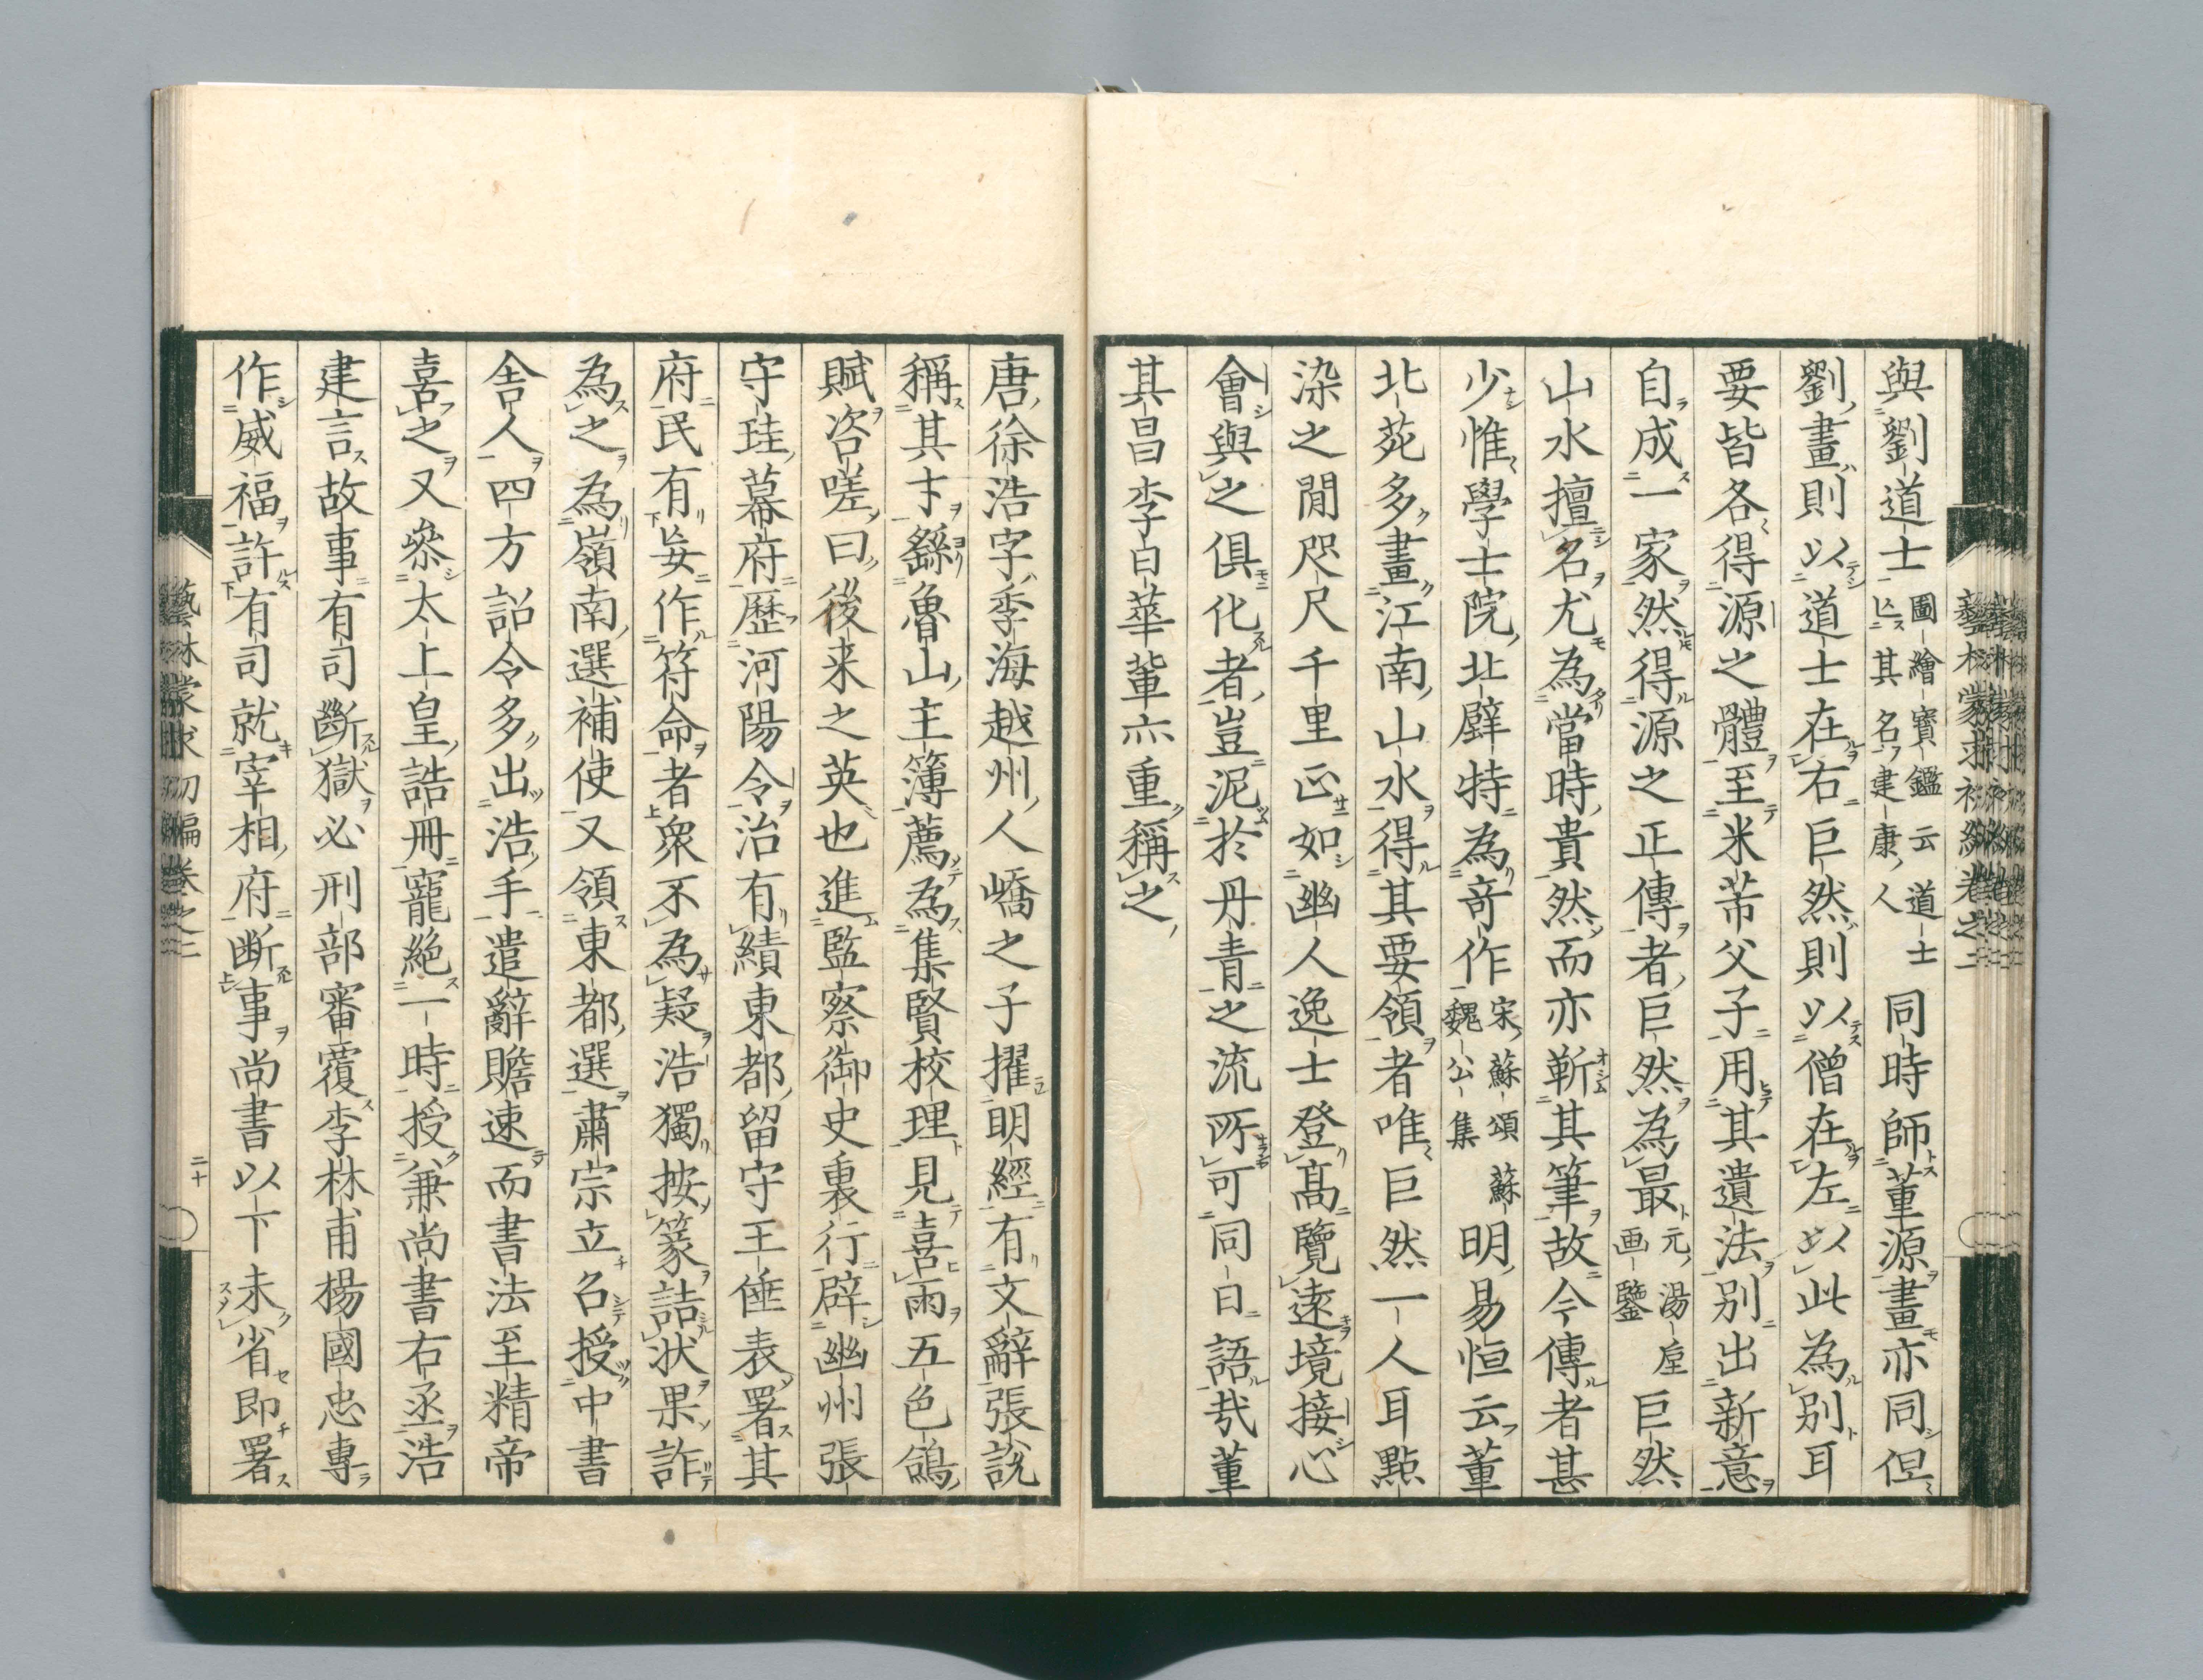 與劉道士圖繪寶鑑云道士亾其名建康人同時師董源畫亦同但
劉畫則以道士在右巨然則以僧在左以此為別耳
要皆各得源之體至米芾父子用其遺法別出新意
自成一家然得源之正傳者巨然為最元湯垕画鑒巨然
山水擅名尤為當時貴然而亦靳其筆故今傳者甚
少惟學士院北壁特為奇作宋蘇頌蘇魏公集明易恒云董
北苑多畫江南山水得其要領者唯巨然一人耳點
染之間咫尺千里正如幽人逸士登高覽遠境接心
會與之俱化者豈泥於丹青之流所可同日語哉董
其昌李白華輩亦重稱之
唐徐浩字季海越州人嶠之子擢明經有文辭張說
稱其才繇魯山主簿薦為集賢校理見喜雨五色鴿
賦咨嗟曰後来之英也進監察御史裏行辟幽州張
守珪幕府歷河陽令治有績東都留守王倕表署其
府民有妄作符命者衆不為疑浩獨按篆詰状果詐
為之為嶺南選補使又領東都選肅宗立名授中書
舍人四方詔令多出浩手遣辭贍速而書法至精帝
喜之又參太上皇誥冊寵絶一時授兼尚書右丞浩
建言故事有司斷獄必刑部審覆李林甫楊國忠專
作威福許有司就宰相府斷事尚書以下未省即署
藝林蒙求初編卷之二
二十